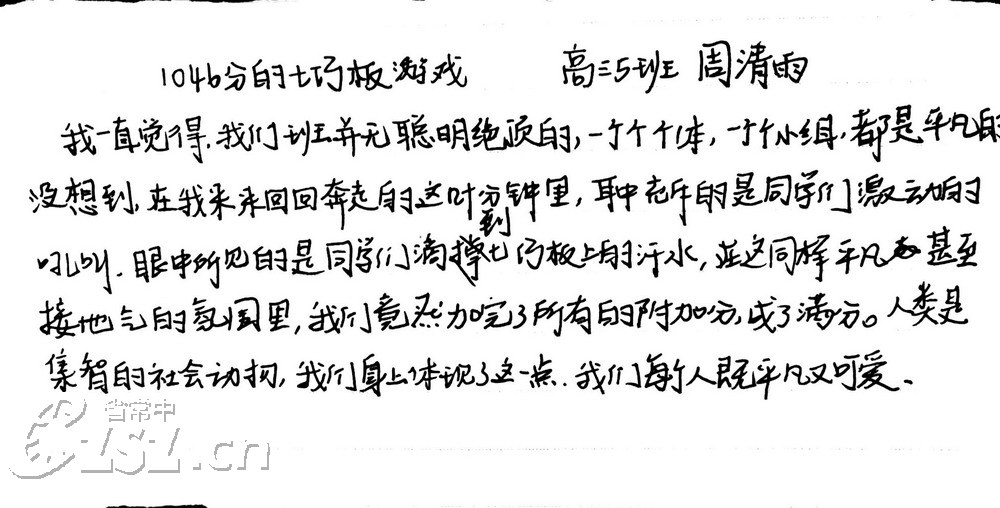 1046分的七巧板游戏 高三5班 周清雨
我一直觉得,我们班并无聪明绝顶的,一个个个体,一个个小组,都是平凡的
没想到,在我来来回回奔走的这叶分钟里,耳中充斥的是同学们激动的
吼叫.眼中所见的是同学们滴到七巧板上的汗水,在这同样平凡甚至
接地气的氛围里,我们竟然加完了所有的附加分,成了满分。人类是
集智的社会动物,我们身上体现了这一点.我们每个人既平凡又可爱.
省常中
CSLSZ.cn